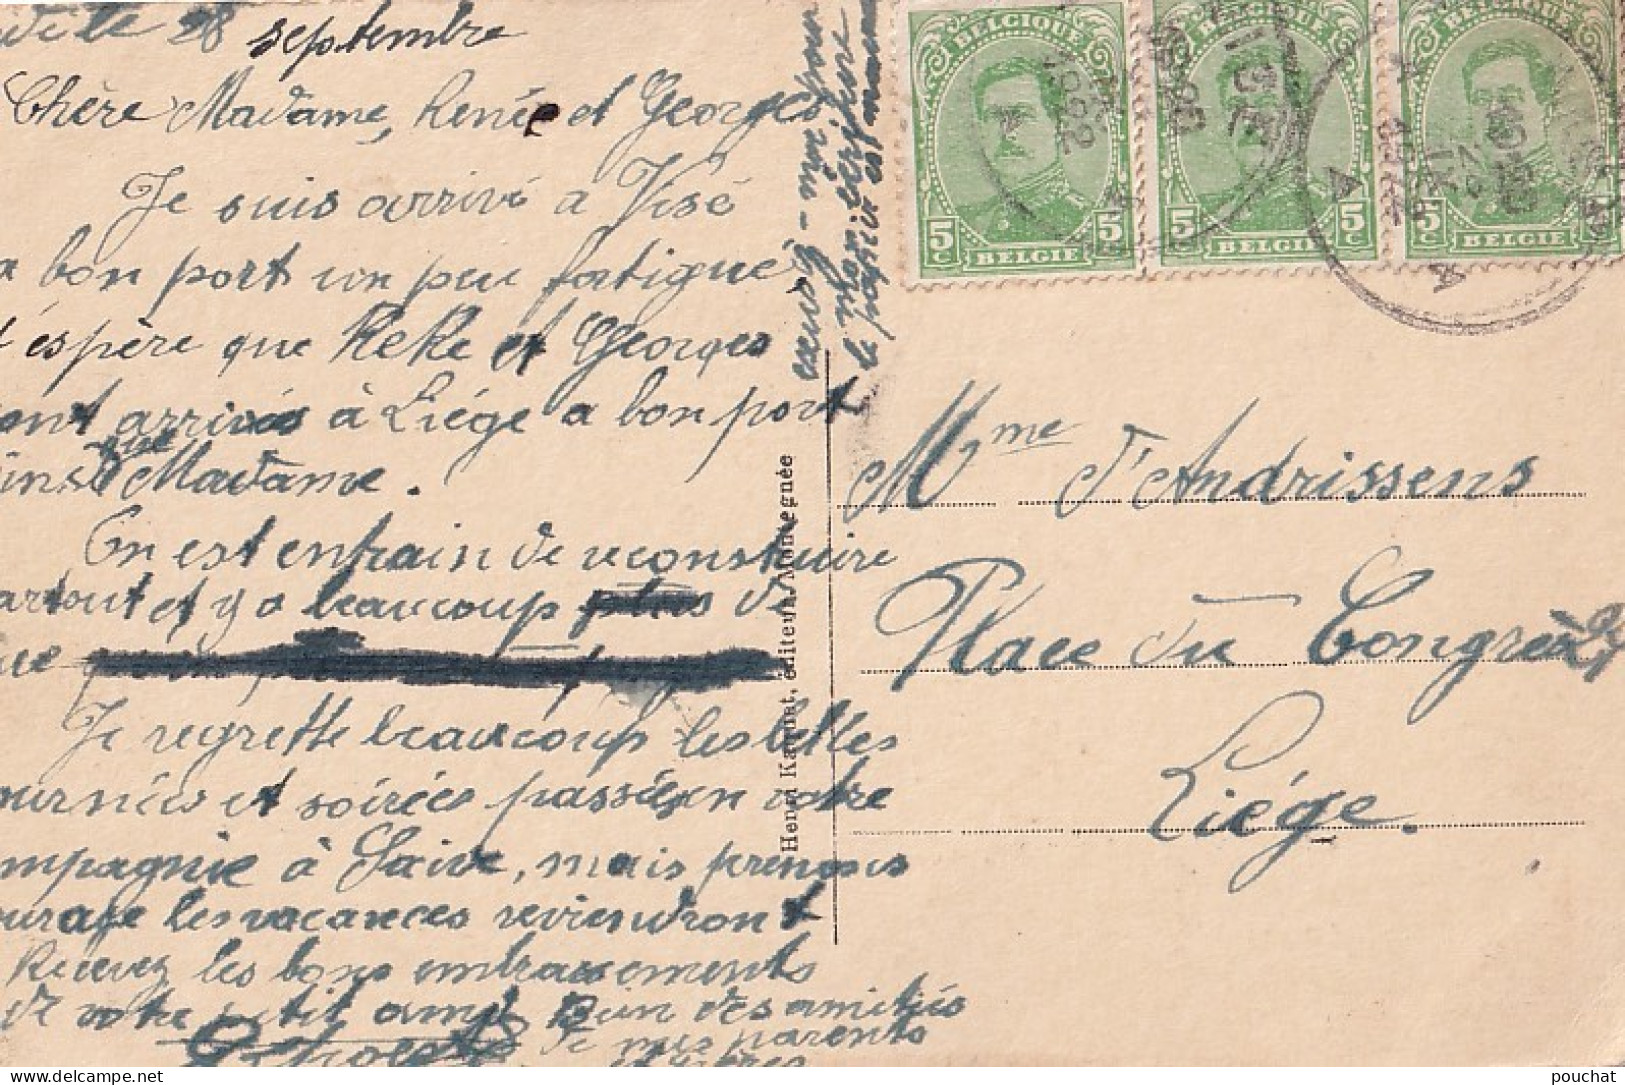 le 28 septembre
Chère Madame, Renée et Georges
Je suis arrivé a Visé
a bon port un peu fatigué
espère que Reke et Georges
sont arrivés à Liége a bon port
ainsi que Madame.
On est entrain de reconstruire
partout et y a beaucoup de
Je regrette beaucoup les belles
journées et soirées passées en votre
compagnie à Saive, mais prenons
courage les vacances reviendront
Recevez les bons embrassements
de votre petit ami bien des amitiés
de mes parents
excusez-moi pour
mon écriture
le papier est mauvais
Henri Kaquet, éditeur, Montegnée
BELGIQUE
5 C 5 C
BELGIE
BELGIQUE
5 5 C
BELGIE
BELGIQUE
5 C
BELGIE
Mme d'Andrissens
Place du Congrès
Liége.
pouchat